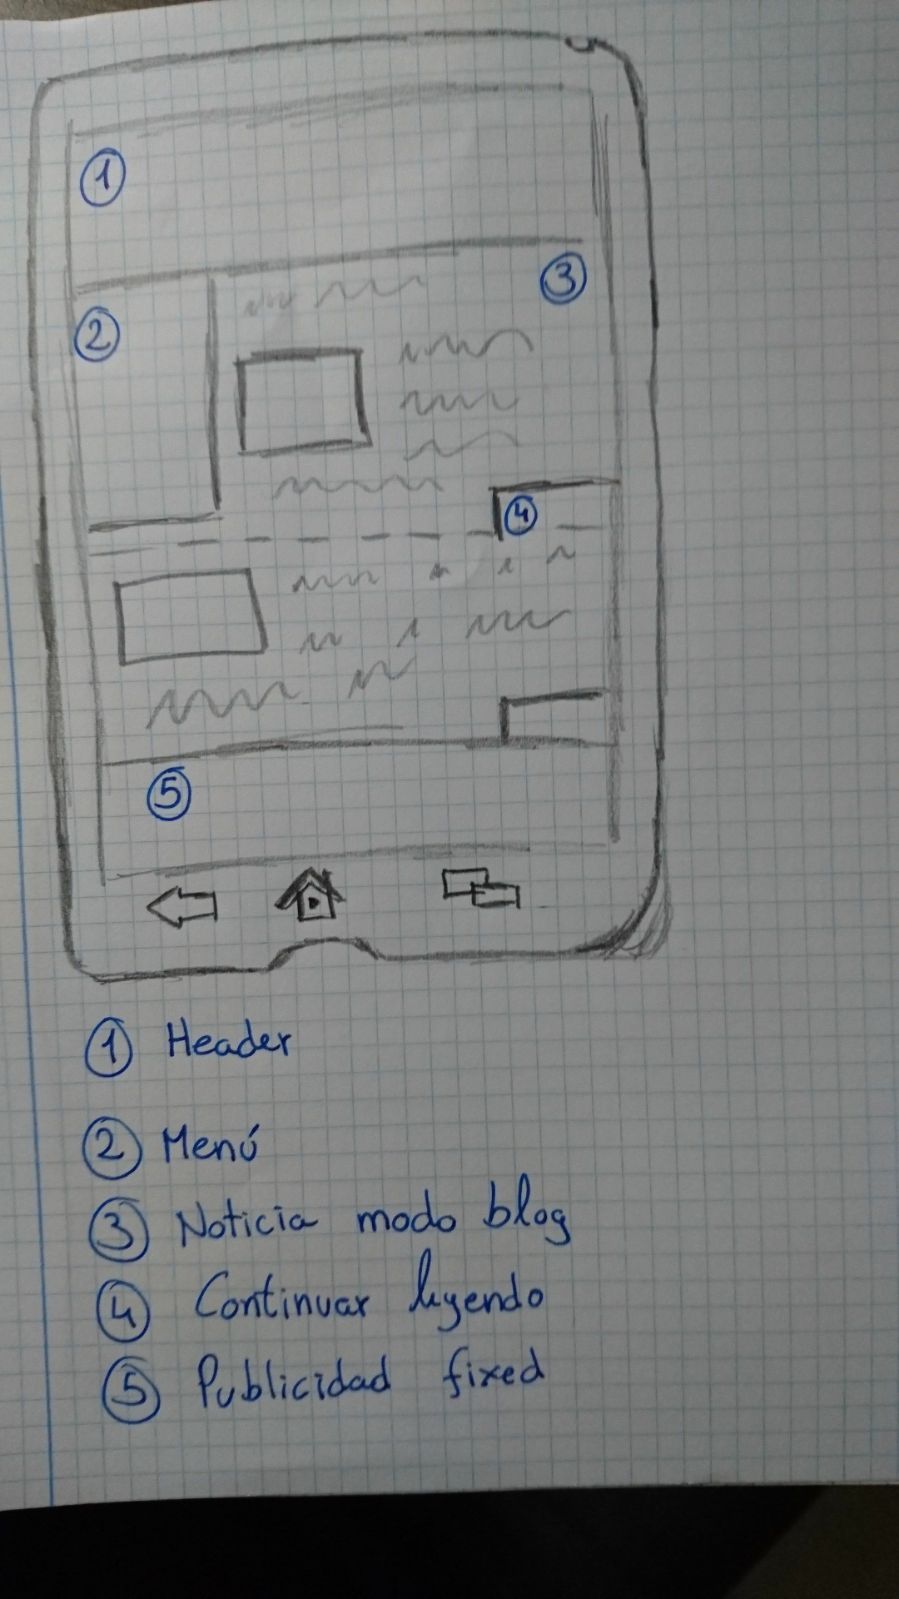 1
2
3
4
5
1 Header
2 Menú
3 Noticia modo blog
4 Continuar leyendo
5 Publicidad fixed